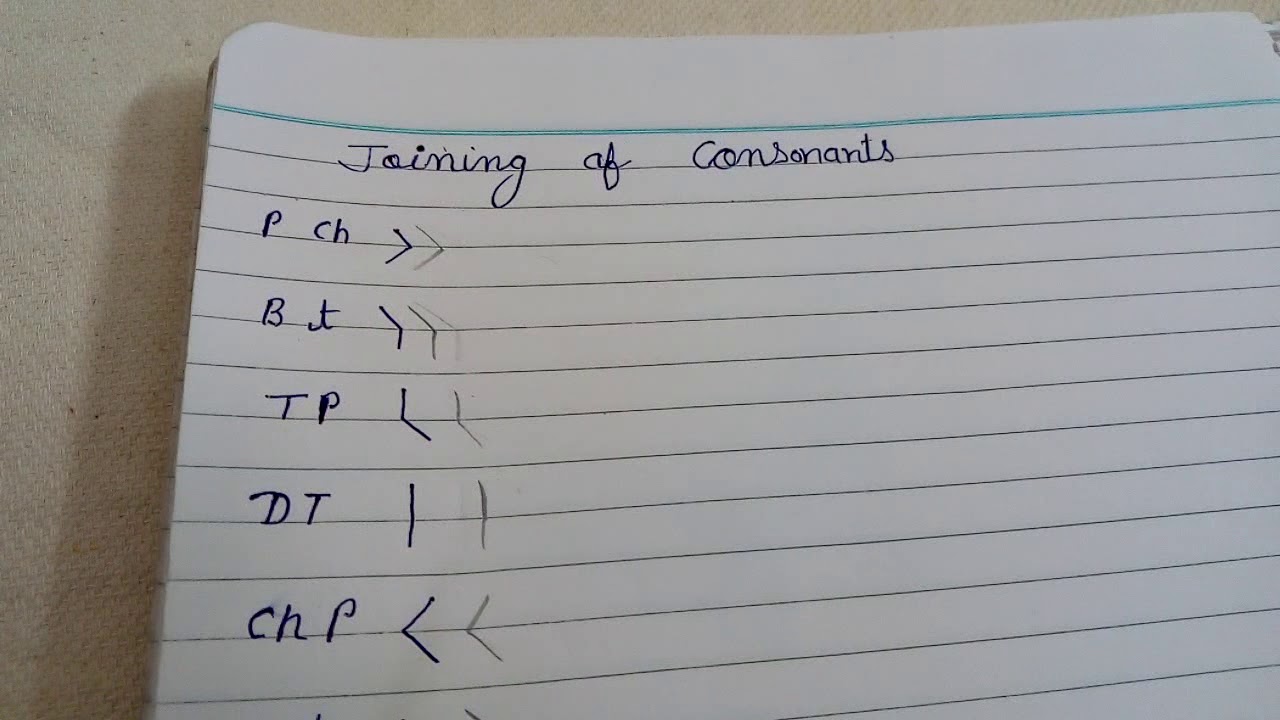 Joining of Consonants
P Ch
B t
T P
D T
Ch P